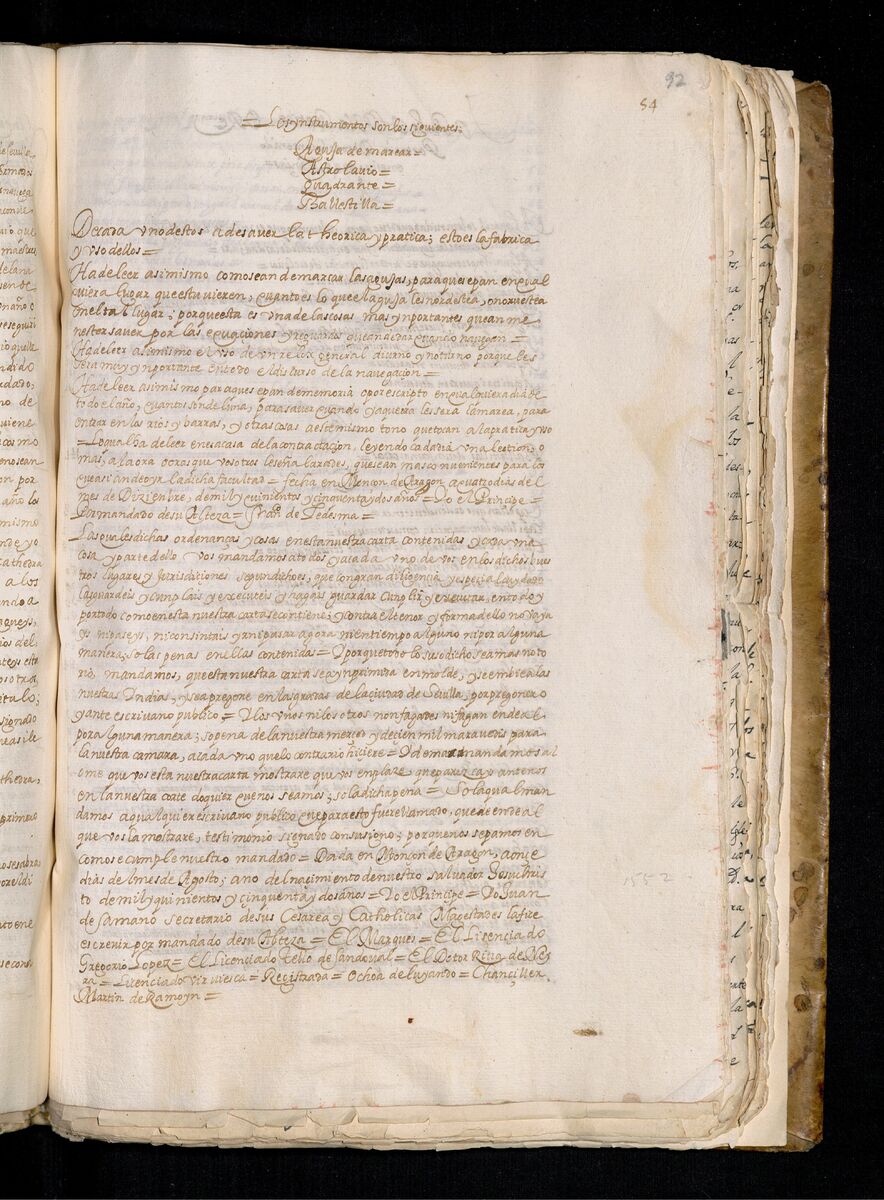 92
54
= Los ynstrumentos son los siguientes:
Aguja de marear =
Astrolavio =
Quadrante =
Ballestilla =
De cada uno destos a de saver la theorica y pratica; esto es la fabrica
y uso dellos =
Ha de leer asimismo como se an de marcar las agujas, para que sepan en qual
quiera lugar que estuvieren, quanto es lo que el aguja les nordestea, o noruestea
en el tal lugar; porque esta es una de las cosas mas ynportantes que an me
nester saver por las equaciones y resguardos que an de dar quando navegan =
Ha de leer asimismo el uso de un relox general diurno y noturno porque les
sera muy ynportante en todo el discurso de la navegacion =
Ha de leer asimismo para que sepan de memoria o por escripto en qualquiera dia de
todo el año, quantos son de luna, para saver quando y a que ora les sera la marea, para
entrar en los rios y barras, y otras cosas a este mismo tono que tocan a la pratica y uso
= Lo qual a de leer en esa casa de la contractacion, leyendo cada dia una lection, o
mas; a la ora o oras que vosotros le señalaredes, que sean mas convenientes para los
que asi an de oyr la dicha facultad = fecha en Monçon de Aragon, a quatro dias del
mes de Diziembre, de mil y quinientos y cinquenta y dos años = Yo el Principe =
Por mandado de su Alteza = Fran.co de Ledesma =
Las quales dichas ordenanças y cosas en esta nuestra carta contenidas y cada una
cosa y parte dello vos mandamos a todos y a cada uno de vos en los dichos vues
tros lugares y jurisdiciones segun dicho es, que con gran diligencia y especial cuydado
las guardeis y cunplais y executeis y hagais guardar cunplir y executar, en todo y
por todo como en esta nuestra carta se contiene; y contra el tenor y forma dello no vaya
ys ni paseys, ni consintais yr ni pasar agora ni en tiempo alguno ni por alguna
manera; so las penas en ellas contenidas = Y porque todo lo susodicho sea mas noto
rio, mandamos, que esta nuestra carta sea ynprimida en molde, y se embie a las
nuestras Indias; y sea pregone en las gradas de la çiudad de Sevilla, por pregonero
y ante escrivano publico = Y los unos ni los otros non fagades ni fagan ende al
por alguna manera; so pena de la nuestra merçed y de cien mil maravedis para
la nuestra camara, a cada uno que lo contrario hiçiere = Y demas mandamos al
ome que vos esta nuestra carta mostrare que vos emplaze que parezcays ante nos
en la nuestra corte do quier que nos seamos; so la dicha pena = So la qual man
damos a qualquier escrivano publico que para esto fuere llamado, que de ende al
que vos la mostrare, testimonio signado con su signo; porque nos sepamos en
como se cumple nuestro mandado = Dada en Monçon de Aragon, a onçe
dias del mes de Agosto; ano del naçimiento de nuestro salvador Jesuchris
to de mil y quinientos y çinquenta y dos años = Yo el Principe = Yo Juan
de Samano secretario de sus Cesarea y Catholicas Magestades la fize
escrevir por mandado de su Alteza = El Marques = El Licenciado
Gregorio Lopez = El Licenciado Tello de Sandoval = El Dotor Riba de Ney
ra = Licenciado Virviesca = Registrada = Ochoa de luyando = Chançiller
Martin de Ramoyn =
1552